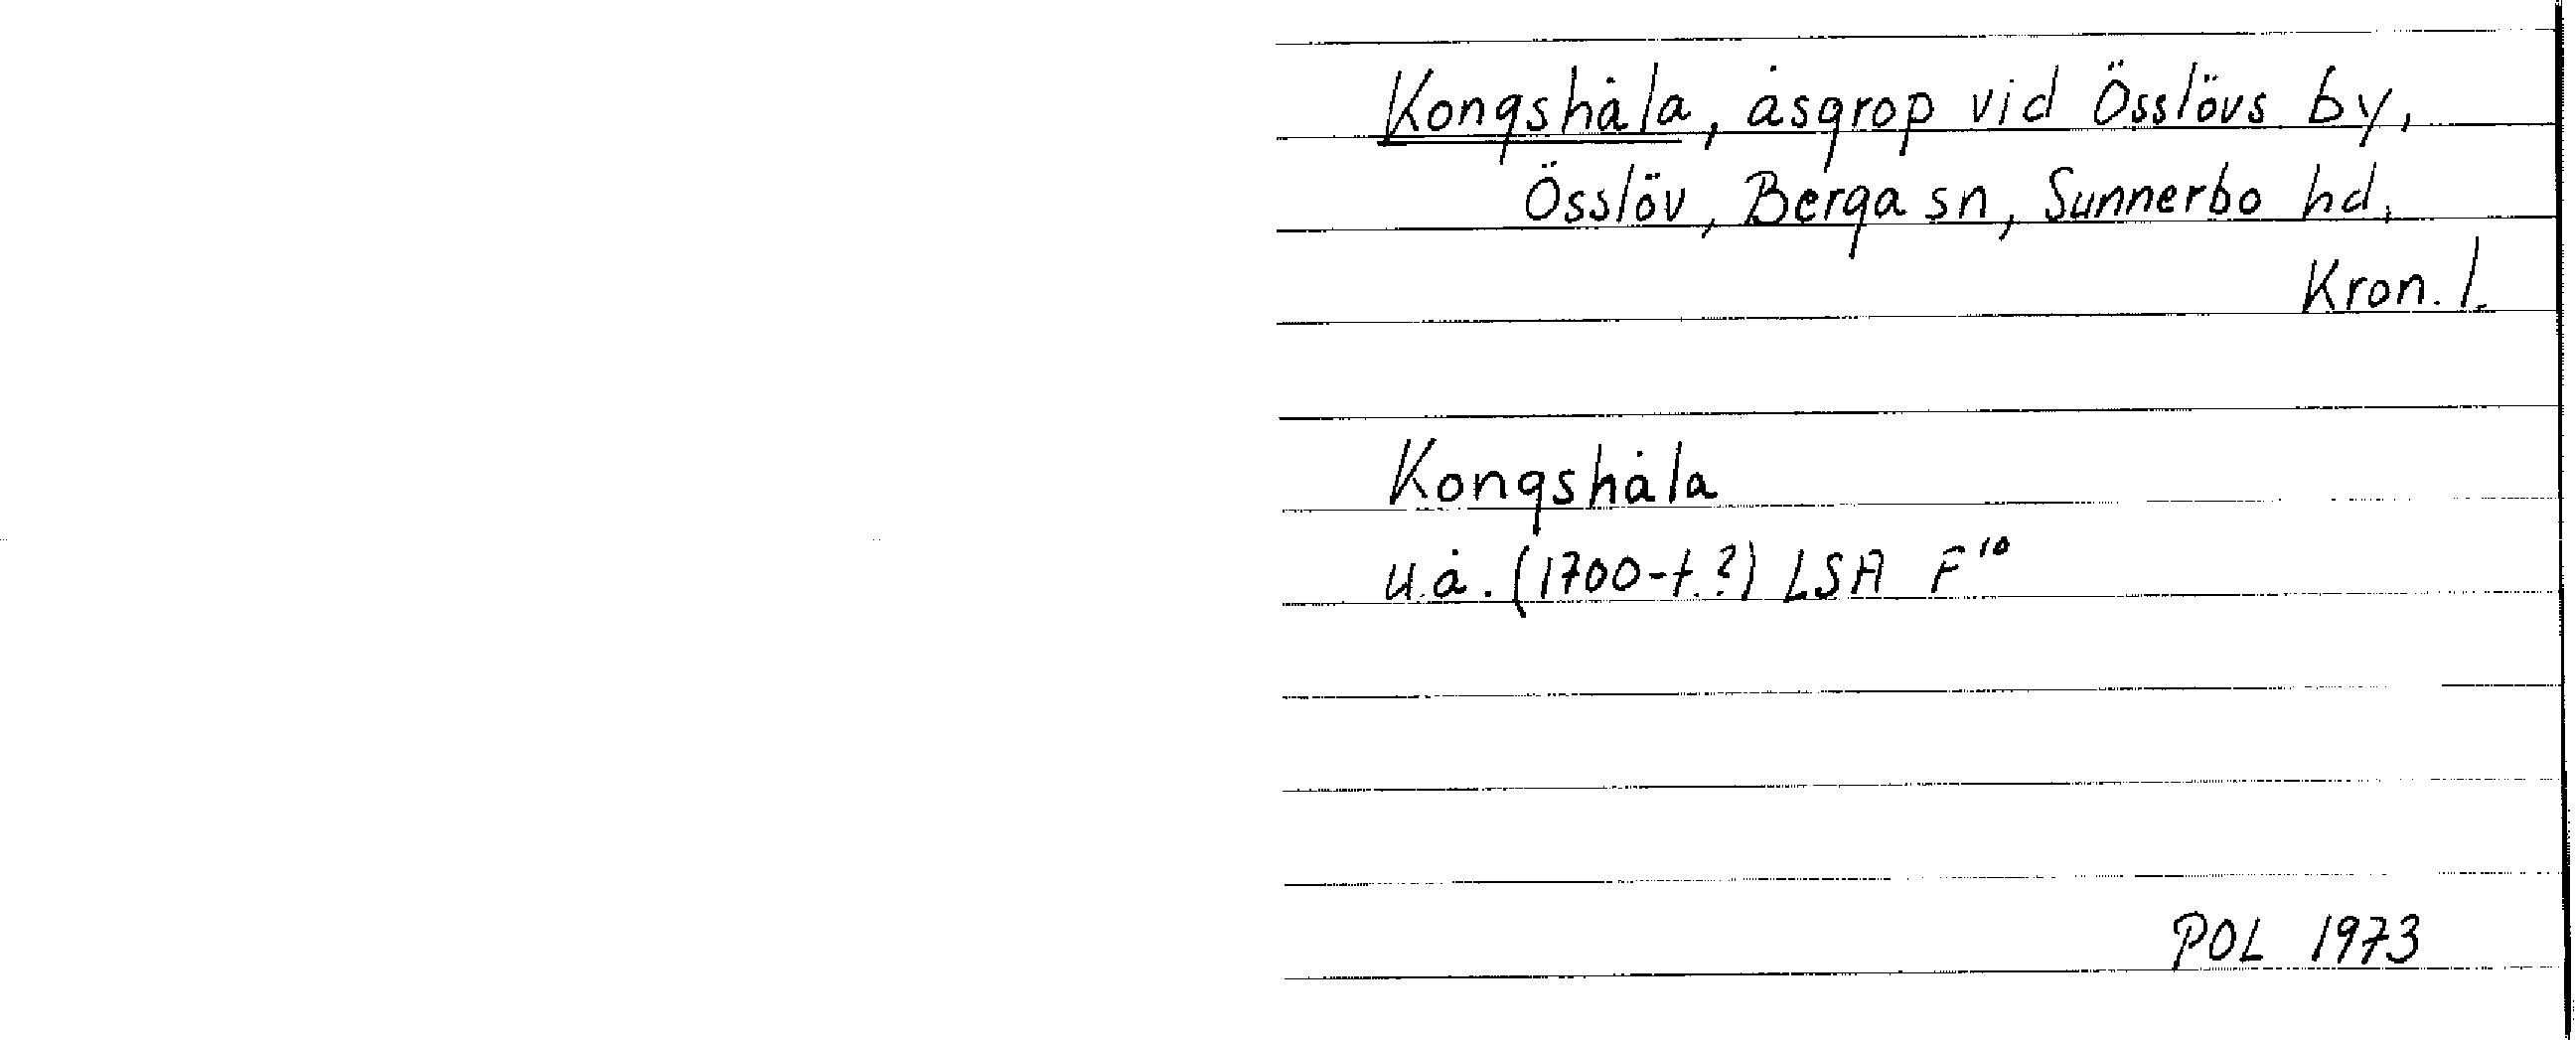 Kongshåla, åsgrop vid Össlövs by,
Össlöv, Berga sn, Sunnerbo hd,
Kron. l.
Kongshåla
u.å. (1700-t.?) LSA F¹⁰
POL 1973